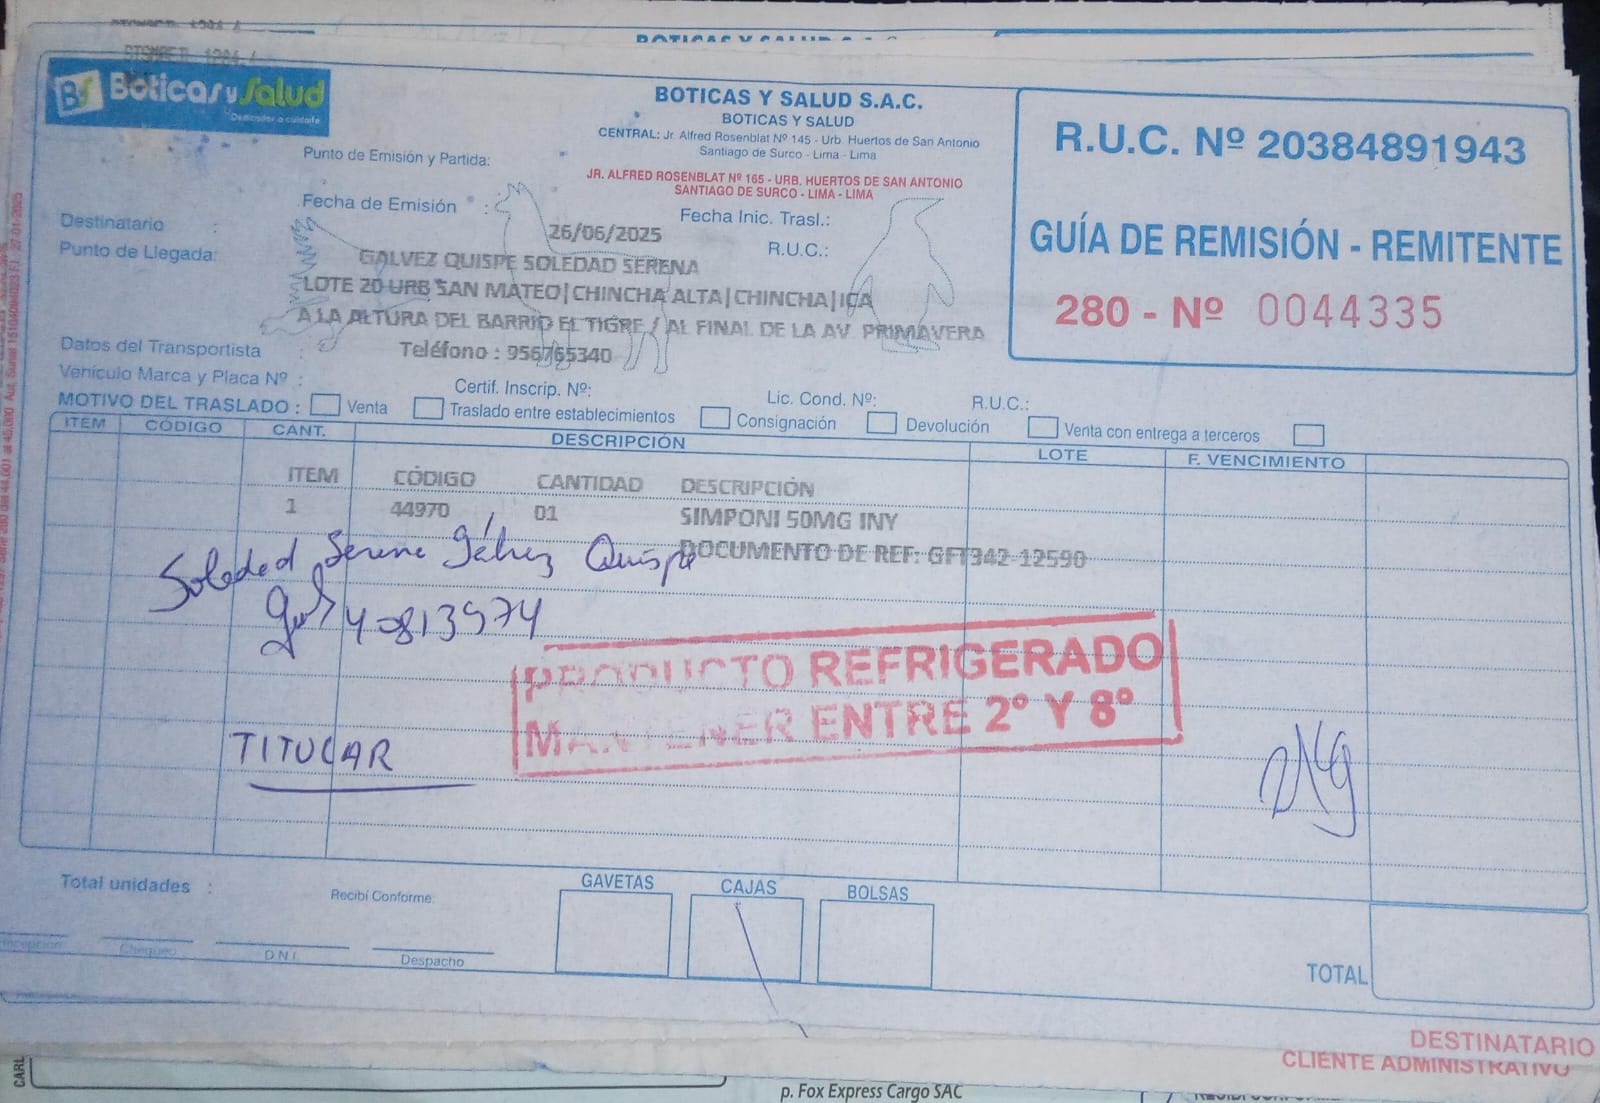 BOTICAS Y SALUD S.A.C.
BS Boticas y Salud
Dedicados a cuidarte
BOTICAS Y SALUD S.A.C.
BOTICAS Y SALUD
CENTRAL: Jr. Alfred Rosenblat Nº 145 - Urb. Huertos de San Antonio
Santiago de Surco - Lima - Lima
Punto de Emisión y Partida:
JR. ALFRED ROSENBLAT Nº 165 - URB. HUERTOS DE SAN ANTONIO
SANTIAGO DE SURCO - LIMA - LIMA
R.U.C. Nº 20384891943
GUÍA DE REMISIÓN - REMITENTE
280 - Nº 0044335
Fecha de Emisión :
26/06/2025
Fecha Inic. Trasl.:
Destinatario :
GALVEZ QUISPE SOLEDAD SERENA
R.U.C.:
Punto de Llegada:
LOTE 20 URB SAN MATEO|CHINCHA ALTA|CHINCHA|ICA
A LA ALTURA DEL BARRIO EL TIGRE / AL FINAL DE LA AV. PRIMAVERA
Datos del Transportista :
Teléfono : 956765340
Vehículo Marca y Placa Nº :
Certif. Inscrip. Nº:
Lic. Cond. Nº:
R.U.C.:
MOTIVO DEL TRASLADO : Venta Traslado entre establecimientos Consignación Devolución Venta con entrega a terceros
ITEM CÓDIGO CANT. DESCRIPCIÓN LOTE F. VENCIMIENTO
ITEM CÓDIGO CANTIDAD DESCRIPCIÓN
1 44970 01 SIMPONI 50MG INY
DOCUMENTO DE REF: GFT342-12590
Soledad Serena Gálvez Quispe
40813974
PRODUCTO REFRIGERADO
MANTENER ENTRE 2° Y 8°
TITULAR
Total unidades :
Recibí Conforme:
GAVETAS CAJAS BOLSAS
Chequeo D.N.I. Despacho
TOTAL
DESTINATARIO
CLIENTE ADMINISTRATIVO
CARL
p. Fox Express Cargo SAC